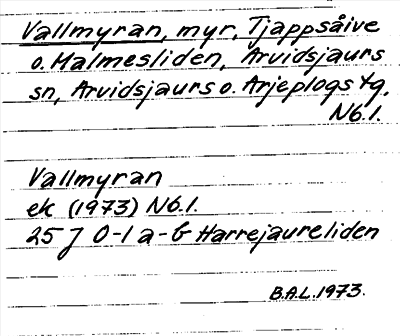 Vallmyran, myr, Tjappsåive
o. Malmesliden, Arvidsjaurs
sn, Arvidsjaurs o. Arjeplogs tg,
Nb.l.
Vallmyran
ek (1973) Nb.l.
25 J 0-1 a-b Harrejaureliden
B.A.L. 1973.